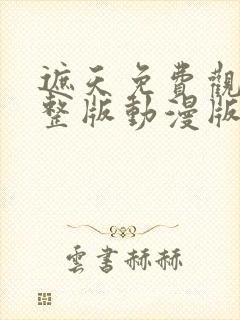 遮天免費觀
整版動漫版
雲書赫赫